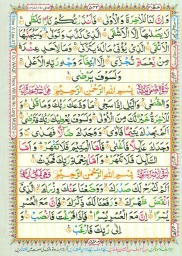 وَإِنَّ لَنَا لَلْآخِرَةَ وَالْأُولَىٰ فَأَنذَرْتُكُمْ نَارًا تَلَظَّىٰ لَا
يَصْلَاهَا إِلَّا الْأَشْقَى الَّذِي كَذَّبَ وَتَوَلَّىٰ وَسَيُجَنَّبُهَا
الْأَتْقَى الَّذِي يُؤْتِي مَالَهُ يَتَزَكَّىٰ وَمَا لِأَحَدٍ عِندَهُ
مِن نِّعْمَةٍ تُجْزَىٰ إِلَّا ابْتِغَاءَ وَجْهِ رَبِّهِ الْأَعْلَىٰ
وَلَسَوْفَ يَرْضَىٰ
بِسْمِ اللَّهِ الرَّحْمَٰنِ الرَّحِيمِ
وَالضُّحَىٰ وَاللَّيْلِ إِذَا سَجَىٰ مَا وَدَّعَكَ رَبُّكَ وَمَا قَلَىٰ وَ
لَلْآخِرَةُ خَيْرٌ لَّكَ مِنَ الْأُولَىٰ وَلَسَوْفَ يُعْطِيكَ رَبُّكَ
فَتَرْضَىٰ أَلَمْ يَجِدْكَ يَتِيمًا فَآوَىٰ وَوَجَدَكَ ضَالًّا فَهَدَىٰ
وَوَجَدَكَ عَائِلًا فَأَغْنَىٰ فَأَمَّا الْيَتِيمَ فَلَا تَقْهَرْ وَأَمَّا
السَّائِلَ فَلَا تَنْهَرْ وَأَمَّا بِنِعْمَةِ رَبِّكَ فَحَدِّثْ
بِسْمِ اللَّهِ الرَّحْمَٰنِ الرَّحِيمِ
أَلَمْ نَشْرَحْ لَكَ صَدْرَكَ وَوَضَعْنَا عَنكَ وِزْرَكَ الَّذِي
أَنقَضَ ظَهْرَكَ وَرَفَعْنَا لَكَ ذِكْرَكَ فَإِنَّ مَعَ الْعُسْرِ
يُسْرًا إِنَّ مَعَ الْعُسْرِ يُسْرًا فَإِذَا فَرَغْتَ فَانصَبْ وَ
إِلَىٰ رَبِّكَ فَارْغَبْ